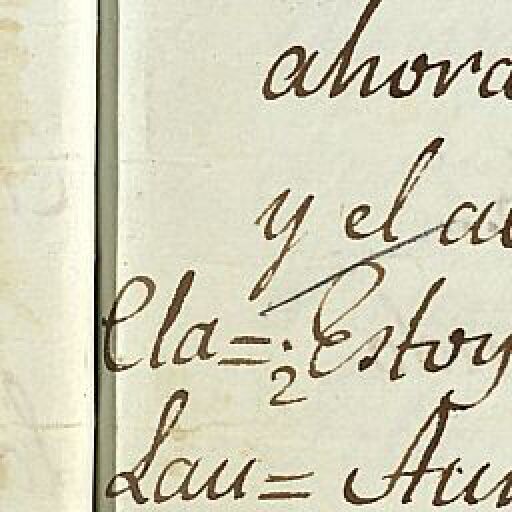 ahora
y el
Cla=¿Estoy
Lau=